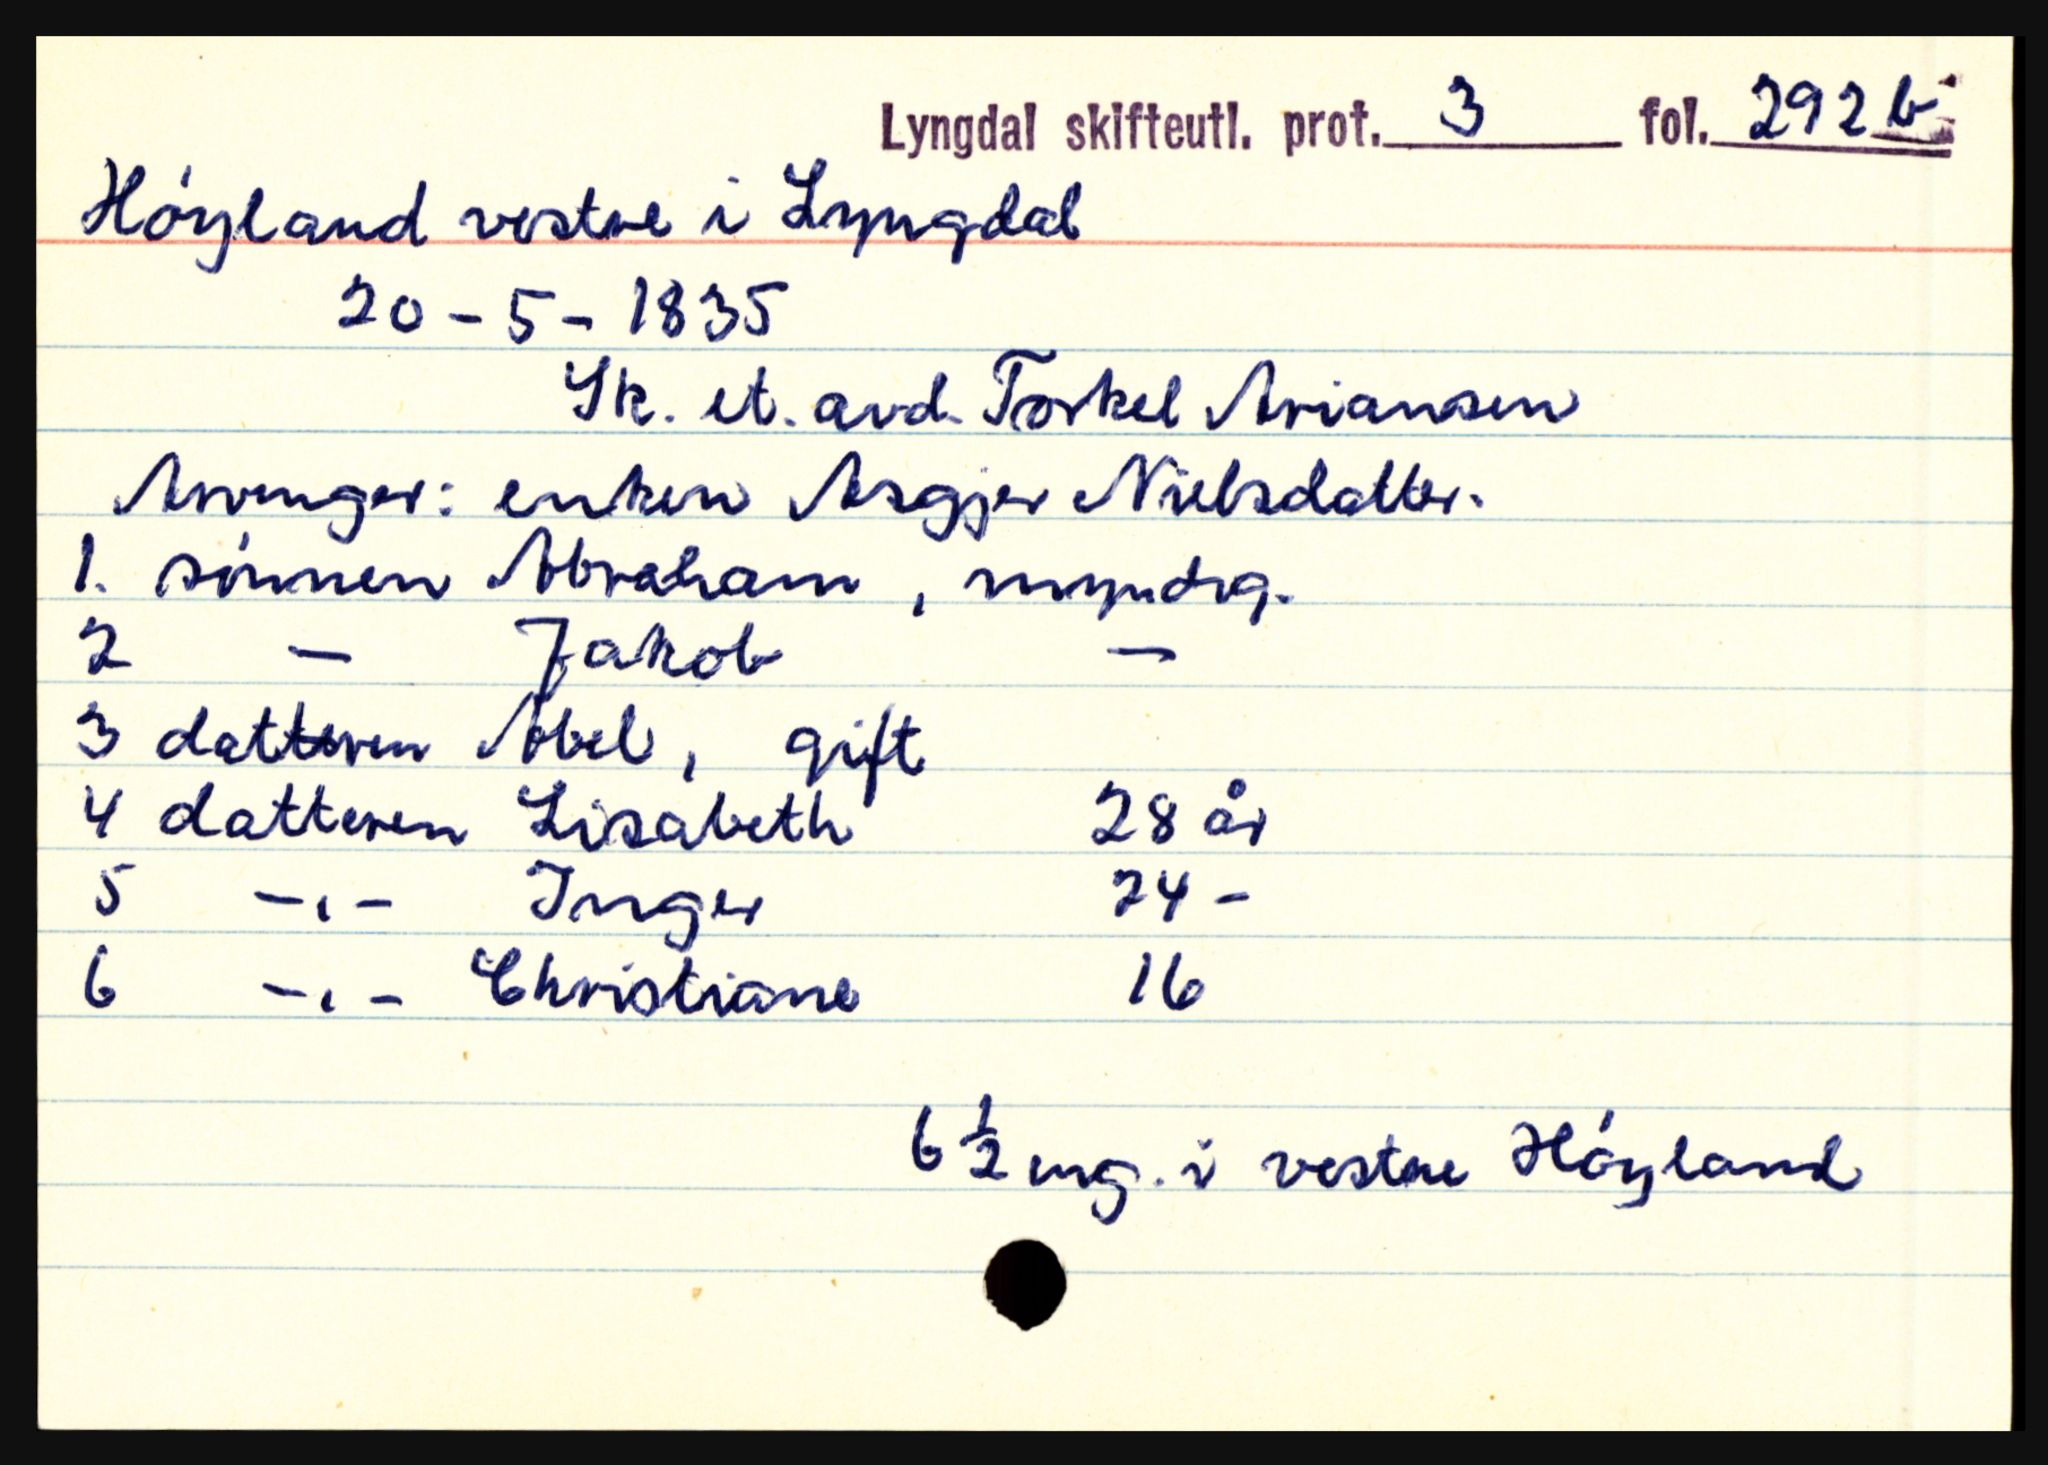 Lyngdal skifteutl. prot. 3 fol. 292 b
Høyland vestre i Lyngdal
20 - 5 - 1835
Sk. et. avd. Torkel Ariansen
Arvinger: enken Asgjer Nielsdatter.
1. sønnen Abraham, myndig.
2 — Jakob —
3 datteren Abel, gift
4 datteren Lisabeth 28 år
5 -,- Inger 24 -
6 -,- Christiane 16
6 ½ mg. i vestre Høyland